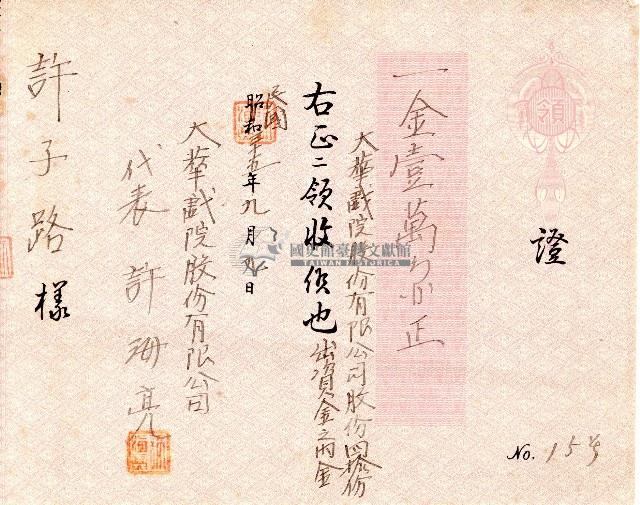 領
證
No. 154
一金壹萬
正
大華戲院股份有限公司股份四拾份
出資金之內金
右正ニ領收候也
民國
昭和
五年九月
日
大華戲院股份有限公司
代表 許
許子路樣
國史館臺灣文獻館
TAIWAN HISTORICA